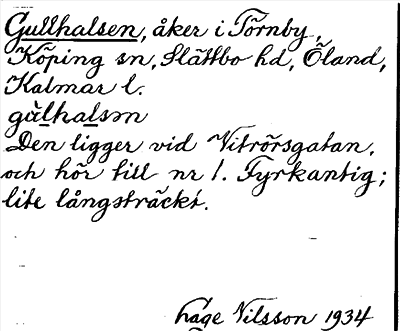 Gullhalsen, åker i Törnby,
Köping sn, Slättbo hd, Öland,
Kalmar l.
gùlhalsm
Den ligger vid Vitrörsgatan,
och hör till nr 1. Fyrkantig;
lite långsträckt.
Åage Nilsson 1934